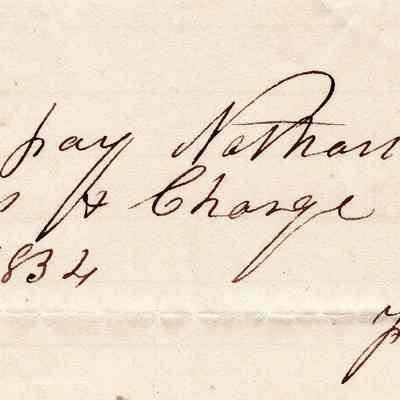 pay Nathan
& Charge
1834